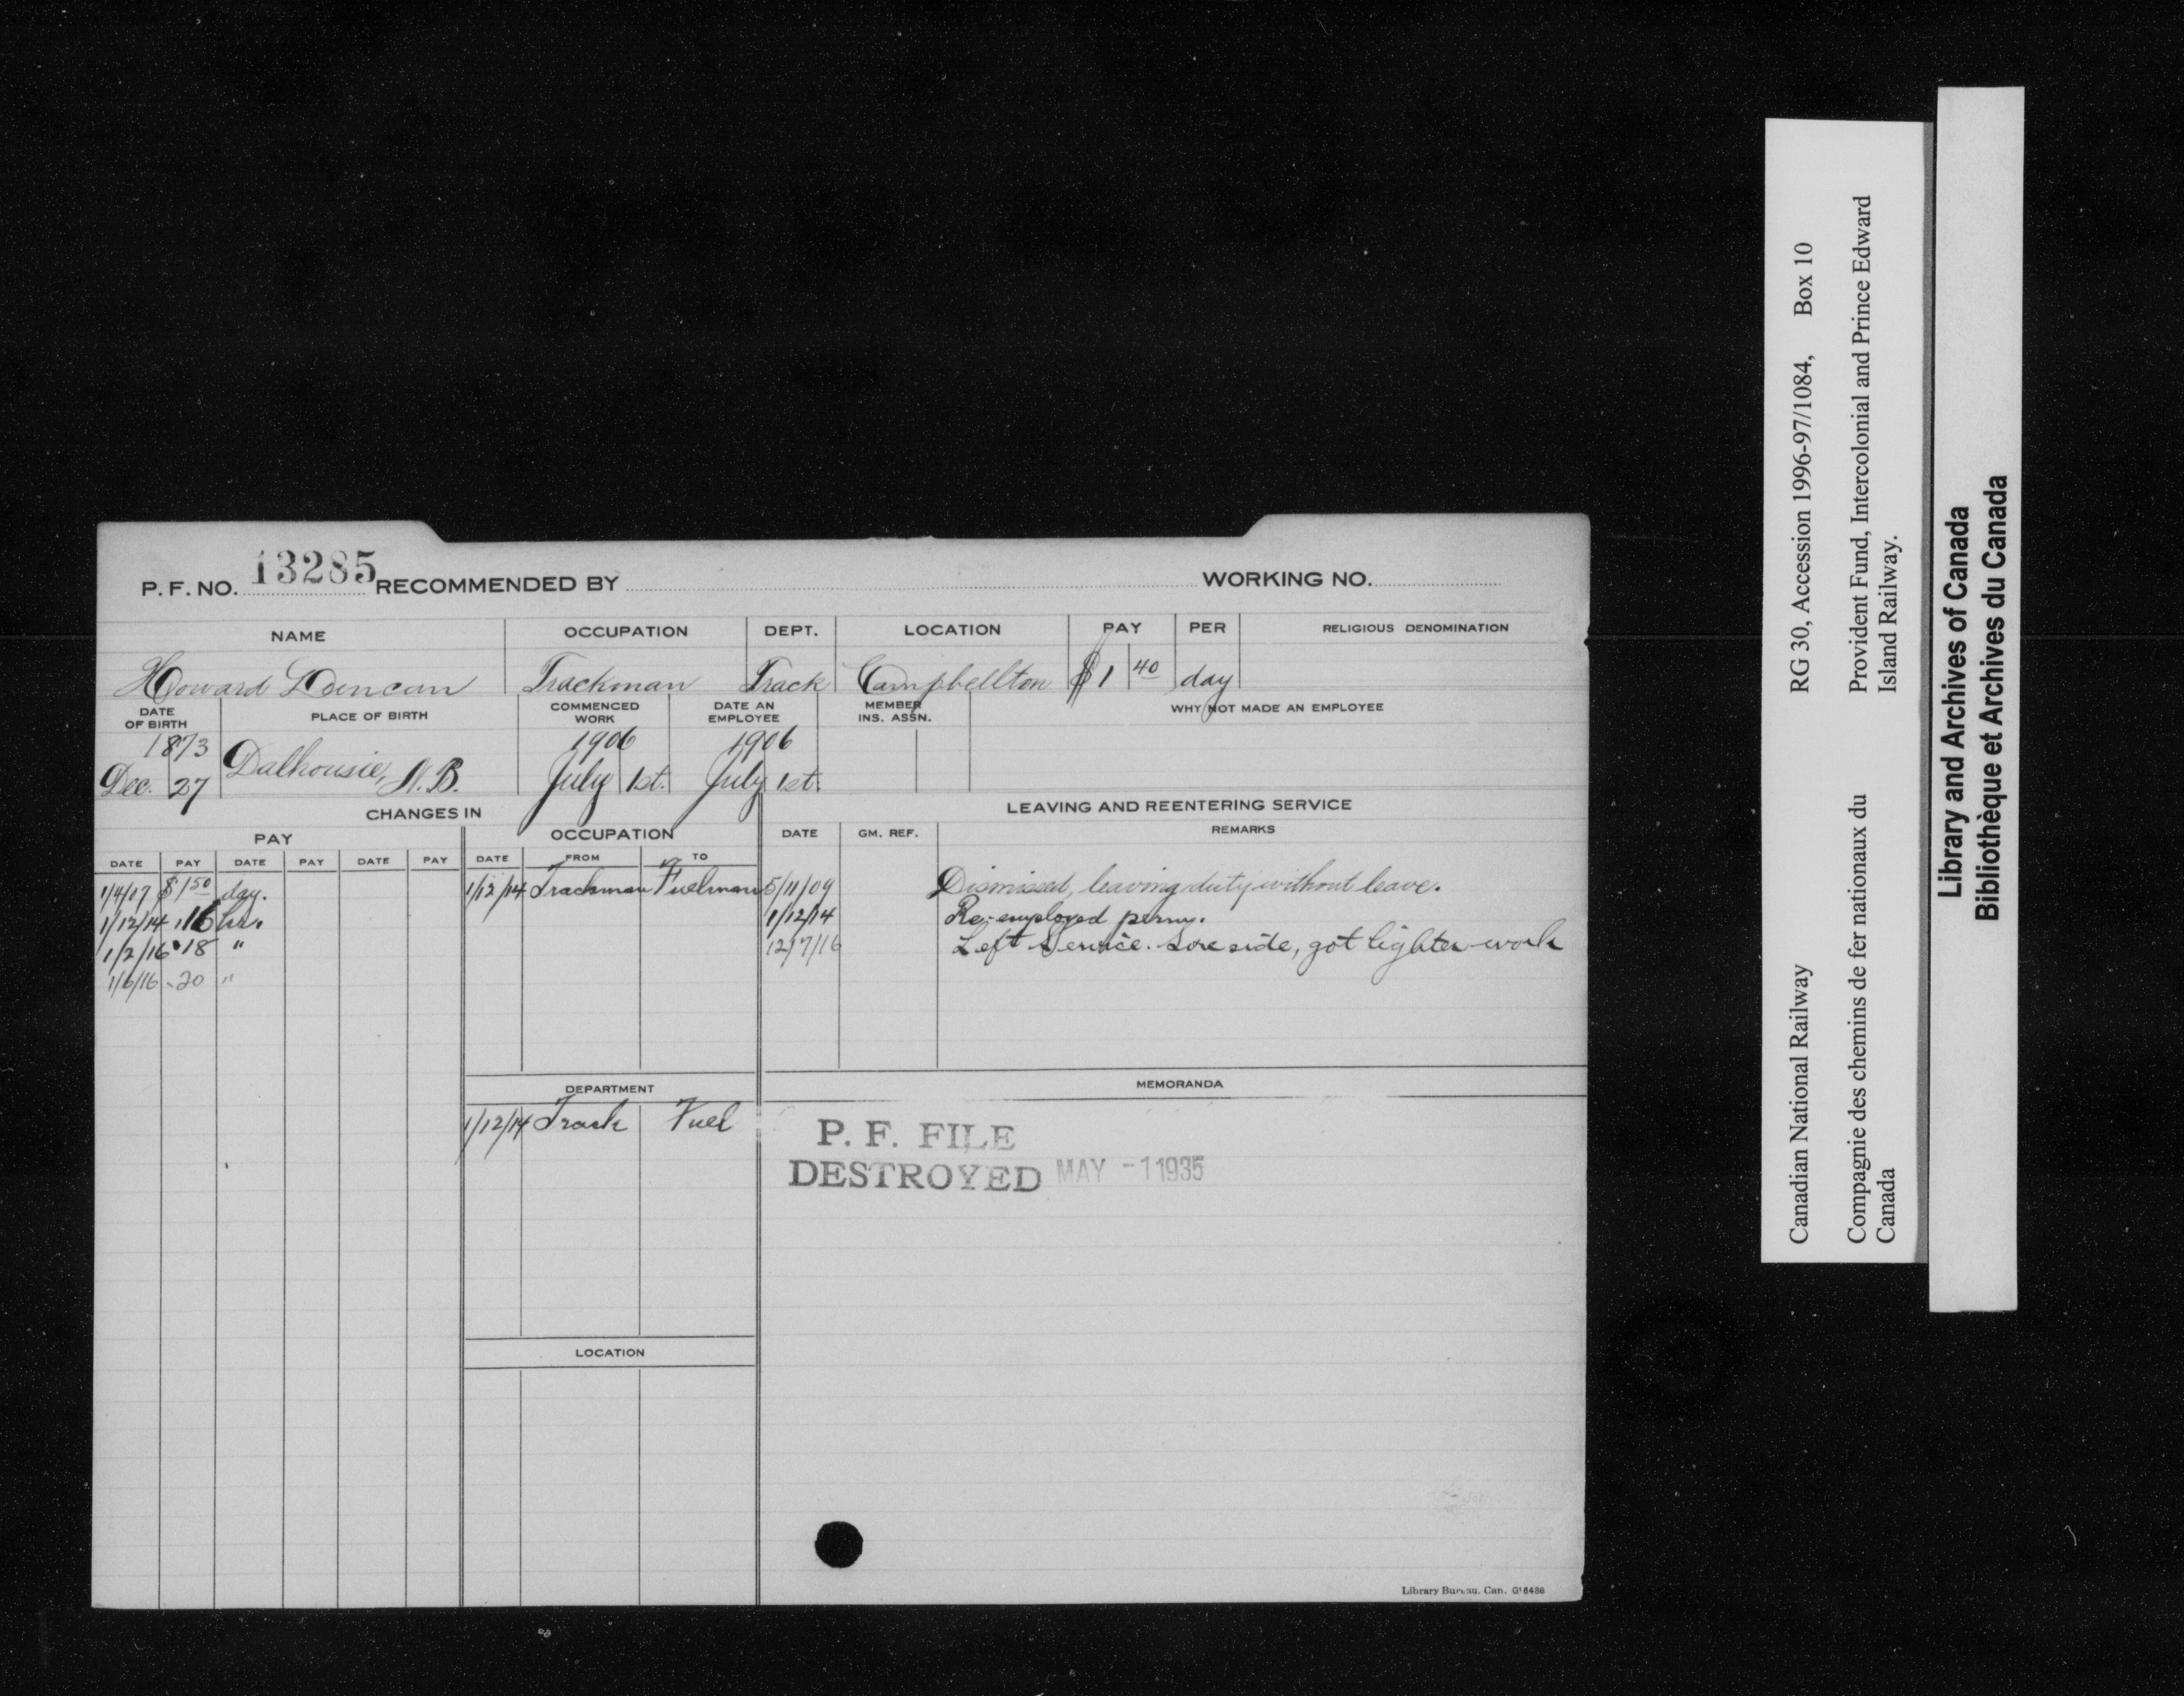 P. F. NO. 13285 RECOMMENDED BY WORKING NO.
NAME OCCUPATION DEPT. LOCATION PAY PER RELIGIOUS DENOMINATION
Howard Duncan Trackman Track Campbellton $1 40 day
DATE OF BIRTH PLACE OF BIRTH COMMENCED WORK DATE AN EMPLOYEE MEMBER INS. ASSN. WHY NOT MADE AN EMPLOYEE
1873 1906 1906
Dec. 27 Dalhousie, N.B. July 1st. July 1st.
CHANGES IN LEAVING AND REENTERING SERVICE
PAY OCCUPATION DATE GM. REF. REMARKS
DATE PAY DATE PAY DATE PAY DATE FROM TO
1/4/07 $1 50 day. 1/12/14 Trackman Fuelman 5/11/09 Dismissed, leaving duty without leave.
1/12/14 .16 hr. 1/12/14 Re-employed permy.
1/2/16 .18 " 12/7/16 Left Service. Sore side, got lighter work
1/6/16 .20 "
DEPARTMENT MEMORANDA
1/12/14 Track Fuel
P. F. FILE
DESTROYED MAY -1 1935
LOCATION
Library Bureau, Can. G16486
Canadian National Railway RG 30, Accession 1996-97/1084, Box 10
Compagnie des chemins de fer nationaux du Provident Fund, Intercolonial and Prince Edward
Canada Island Railway.
Library and Archives of Canada
Bibliothèque et Archives du Canada